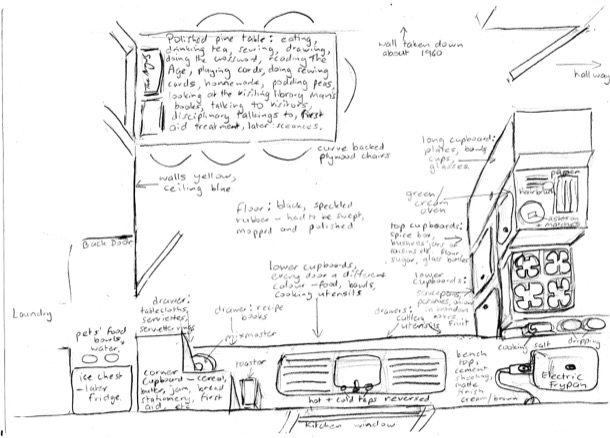 Polished pine table: eating,
drinking tea, sewing, drawing,
doing the crossword, reading The
Age, playing cards, doing sewing
cards, homework, podding peas,
looking at the visiting library man's
books, talking to visitors,
disciplinary talkings to, first
aid treatment, later seances.
wall taken down
about 1960
hallway
long cupboard:
plates, bowls
cups,
glasses
curve backed
plywood chairs
walls yellow,
ceiling blue
green/
cream
oven
paper
ashtray
+ matches
floor: black, speckled
rubber - had to be swept,
mopped and polished
top cupboards:
spice box,
jars of
flour,
sugar, glass bottles
Back Door
lower cupboards,
every door a different
colour - food, bowls,
cooking utensils
lower
cupboards:
fruit
Laundry
drawer:
tablecloths,
serviettes,
drawer: recipe
books
mixmaster
drawers:
utensils
pets' food
bowls,
water.
toaster
cooking salt dripping
bench
top,
cement
sheeting,
matte
finish
cream/brown
Electric
Frypan
ice chest
- later
fridge.
corner
cupboard - cereal,
butter, jam, bread
stationery, first
aid, etc
hot + cold taps reversed
kitchen window